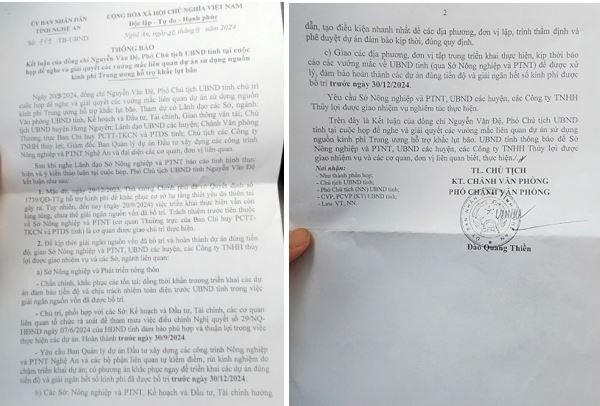 ỦY BAN NHÂN DÂN
TỈNH NGHỆ AN
CỘNG HÒA XÃ HỘI CHỦ NGHĨA VIỆT NAM
Độc lập - Tự do - Hạnh phúc
/TB-UBND
Nghệ An, ngày 9 năm 2024
THÔNG BÁO
Kết luận của đồng chí Nguyễn Văn Đệ, Phó Chủ tịch UBND tỉnh tại cuộc
họp để nghe và giải quyết các vướng mắc liên quan dự án sử dụng nguồn
kinh phí Trung ương hỗ trợ khắc lụt bão
Ngày 20/9/2024, đồng chí Nguyễn Văn Đệ, Phó Chủ tịch UBND tỉnh chủ trì
cuộc họp để nghe và giải quyết các vướng mắc liên quan dự án sử dụng nguồn
kinh phí Trung ương hỗ trợ khắc lụt bão. Tham dự có Lãnh đạo các Sở, ngành:
Văn phòng UBND tỉnh, Kế hoạch và Đầu tư, Tài chính, Giao thông vận tải; Chủ
tịch UBND huyện Hưng Nguyên; Lãnh đạo UBND các huyện; Chánh Văn phòng
Thường trực Ban Chỉ huy PCTT-TKCN và PTDS tỉnh; Chủ tịch các Công ty
TNHH thủy lợi; Giám đốc Ban Quản lý dự án Đầu tư xây dựng các công trình
Nông nghiệp và PTNT Nghệ An và đại diện các cơ quan, đơn vị liên quan.
Sau khi nghe Lãnh đạo Sở Nông nghiệp và PTNT báo cáo tình hình thực
hiện và ý kiến thảo luận tại cuộc họp, Phó Chủ tịch UBND tỉnh Nguyễn Văn Đệ
kết luận như sau:
1. Mặc dù, ngày 29/12/2023, Thủ tướng Chính phủ đã có Quyết định số
1739/QĐ-TTg hỗ trợ kinh phí để khắc phục cơ sở hạ tầng thiết yếu do thiên tai
gây ra. Tuy nhiên, đến nay (ngày 20/9/2024) việc triển khai thực hiện vẫn còn
lúng túng, chưa thể giải ngân nguồn vốn đã bố trí. Trách nhiệm trước tiên thuộc
về Sở Nông nghiệp và PTNT (cơ quan Thường trực của Ban Chỉ huy PCTT-
TKCN và PTDS tỉnh) là cơ quan được giao chủ trì thực hiện.
2. Để kịp thời giải ngân nguồn vốn đã bố trí và hoàn thành dự án đúng tiến
độ, giao Sở Nông nghiệp và PTNT, UBND các huyện, các Công ty TNHH
thủy lợi được giao nhiệm vụ và các Sở, ngành liên quan:
a) Sở Nông nghiệp và Phát triển nông thôn
- Chấn chỉnh, khắc phục các tồn tại; đồng thời khẩn trương triển khai các dự
án đảm bảo tiến độ và chịu trách nhiệm toàn diện trước UBND tỉnh trong việc
giải ngân nguồn vốn đã được bố trí.
- Chủ trì, phối hợp với các Sở: Kế hoạch và Đầu tư, Tài chính, các cơ quan
liên quan tổ chức rà soát để tham mưu việc điều chỉnh Nghị quyết số 29/NQ-
HĐND ngày 07/6/2024 của HĐND tỉnh đảm bảo phù hợp và thuận lợi trong việc
thực hiện các dự án. Hoàn thành trước ngày 30/9/2024.
- Yêu cầu Ban Quản lý dự án Đầu tư xây dựng các công trình Nông nghiệp
và PTNT Nghệ An và các bộ phận liên quan tự kiểm điểm, rút kinh nghiệm do
chậm triển khai dự án; có phương án khắc phục ngay để triển khai các dự án đúng
tiến độ và giải ngân hết số kinh phí đã được bố trí trước ngày 30/12/2024.
b) Các Sở: Nông nghiệp và PTNT, Kế hoạch và Đầu tư, Tài chính hướng
2
dẫn, tạo điều kiện nhanh nhất để các địa phương, đơn vị lập, trình thẩm định và
phê duyệt dự án đảm bảo kịp thời, đúng quy định.
c) Giao các địa phương, đơn vị tập trung triển khai thực hiện, kịp thời báo
cáo các vướng mắc về UBND tỉnh (qua Sở Nông nghiệp và PTNT) để được xử
lý, đảm bảo hoàn thành các dự án đúng tiến độ và giải ngân hết số kinh phí được
bố trí trước ngày 30/12/2024.
Yêu cầu Sở Nông nghiệp và PTNT, UBND các huyện, các Công ty TNHH
Thủy lợi được giao nhiệm vụ nghiêm túc thực hiện.
Trên đây là Kết luận của đồng chí Nguyễn Văn Đệ, Phó Chủ tịch UBND
tỉnh tại cuộc họp để nghe và giải quyết các vướng mắc liên quan dự án sử dụng
nguồn kinh phí Trung ương hỗ trợ khắc lụt bão. UBND tỉnh thông báo để Sở
Nông nghiệp và PTNT, UBND các huyện, các Công ty TNHH Thủy lợi được
giao nhiệm vụ và các cơ quan, đơn vị liên quan biết, thực hiện./.
Nơi nhận:
- Như thành phần họp;
- Chủ tịch UBND tỉnh;
- Phó Chủ tịch (NN) UBND tỉnh;
- CVP, PCVP (KT) UBND tỉnh;
- Lưu: VT, NN.
TL. CHỦ TỊCH
KT. CHÁNH VĂN PHÒNG
PHÓ CHÁNH VĂN PHÒNG
Đào Quang Thiền